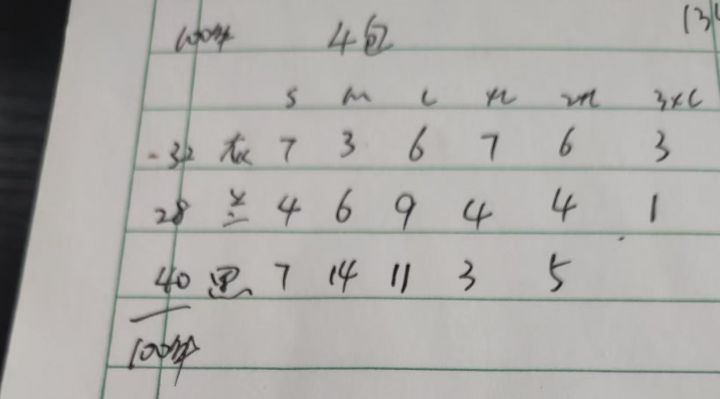 100件 4包
S M L XL 2XL 3XL
32 灰 7 3 6 7 6 3
28 兰 4 6 9 4 4 1
40 黑 7 14 11 3 5
100件